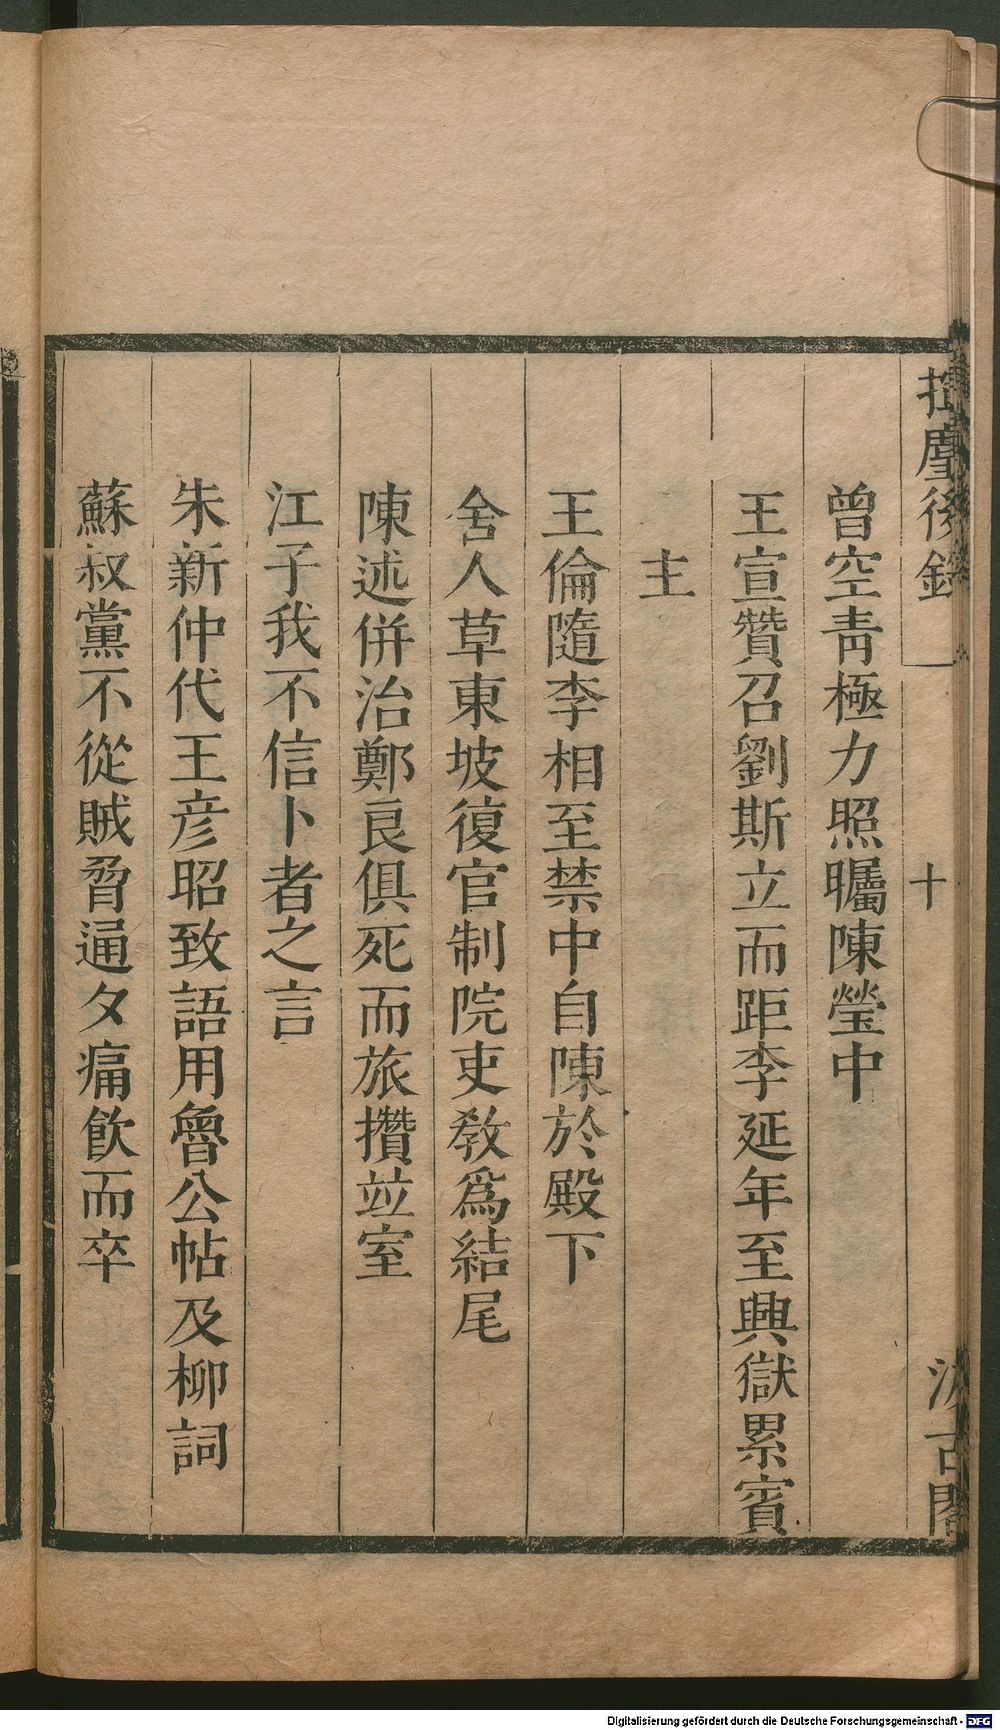 揮麈後錄
十
汲古閣
曾空靑極力照矚陳瑩中
王宣贊召劉斯立而距李延年至興獄累賓
主
王倫隨李相至禁中自陳於殿下
舍人草東坡復官制院吏敎爲結尾
陳述併治鄭良俱死而旅攢竝室
江子我不信卜者之言
朱新仲代王彥昭致語用魯公帖及柳詞
蘇叔黨不從賊脅通夕痛飮而卒
Digitalisierung gefördert durch die Deutsche Forschungsgemeinschaft - DFG